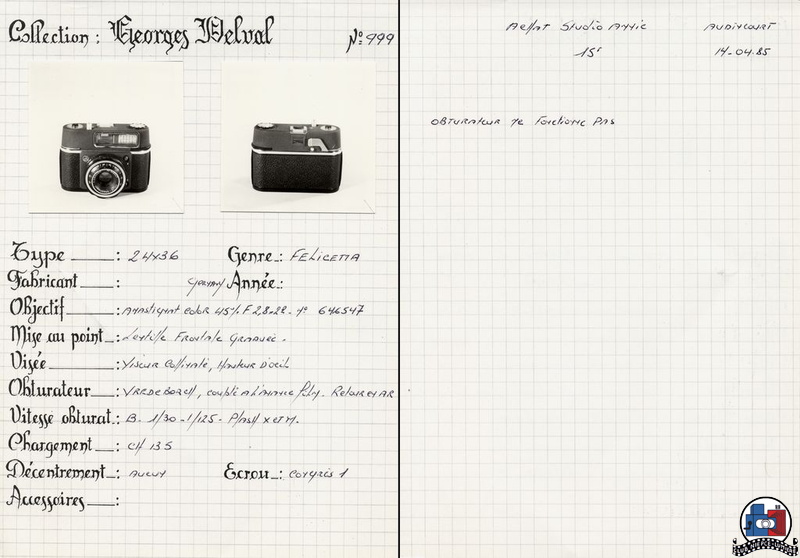 Collection : Georges Delval
N° 999
Type : 24x36 Genre : FELICETTA
Fabricant : Germany Année :
Objectif : Anastigmat color 45% F 2,8-22 - N° 646547
Mise au point : Lentille Frontale Graduée.
Visée : Viseur Collimaté, Hauteur D'oeil
Obturateur : VREDEBORCH, couplé à l'avance film. Retardear
Vitesse obturat. : B. 1/30 - 1/125 - Flash X et M.
Chargement : CH 135
Décentrement : Aucun Ecrou : Congrès 1
Accessoires :
Achat Studio AUDINCOURT
15F 14-04-85
OBTURATEUR NE Fonctionne PAS